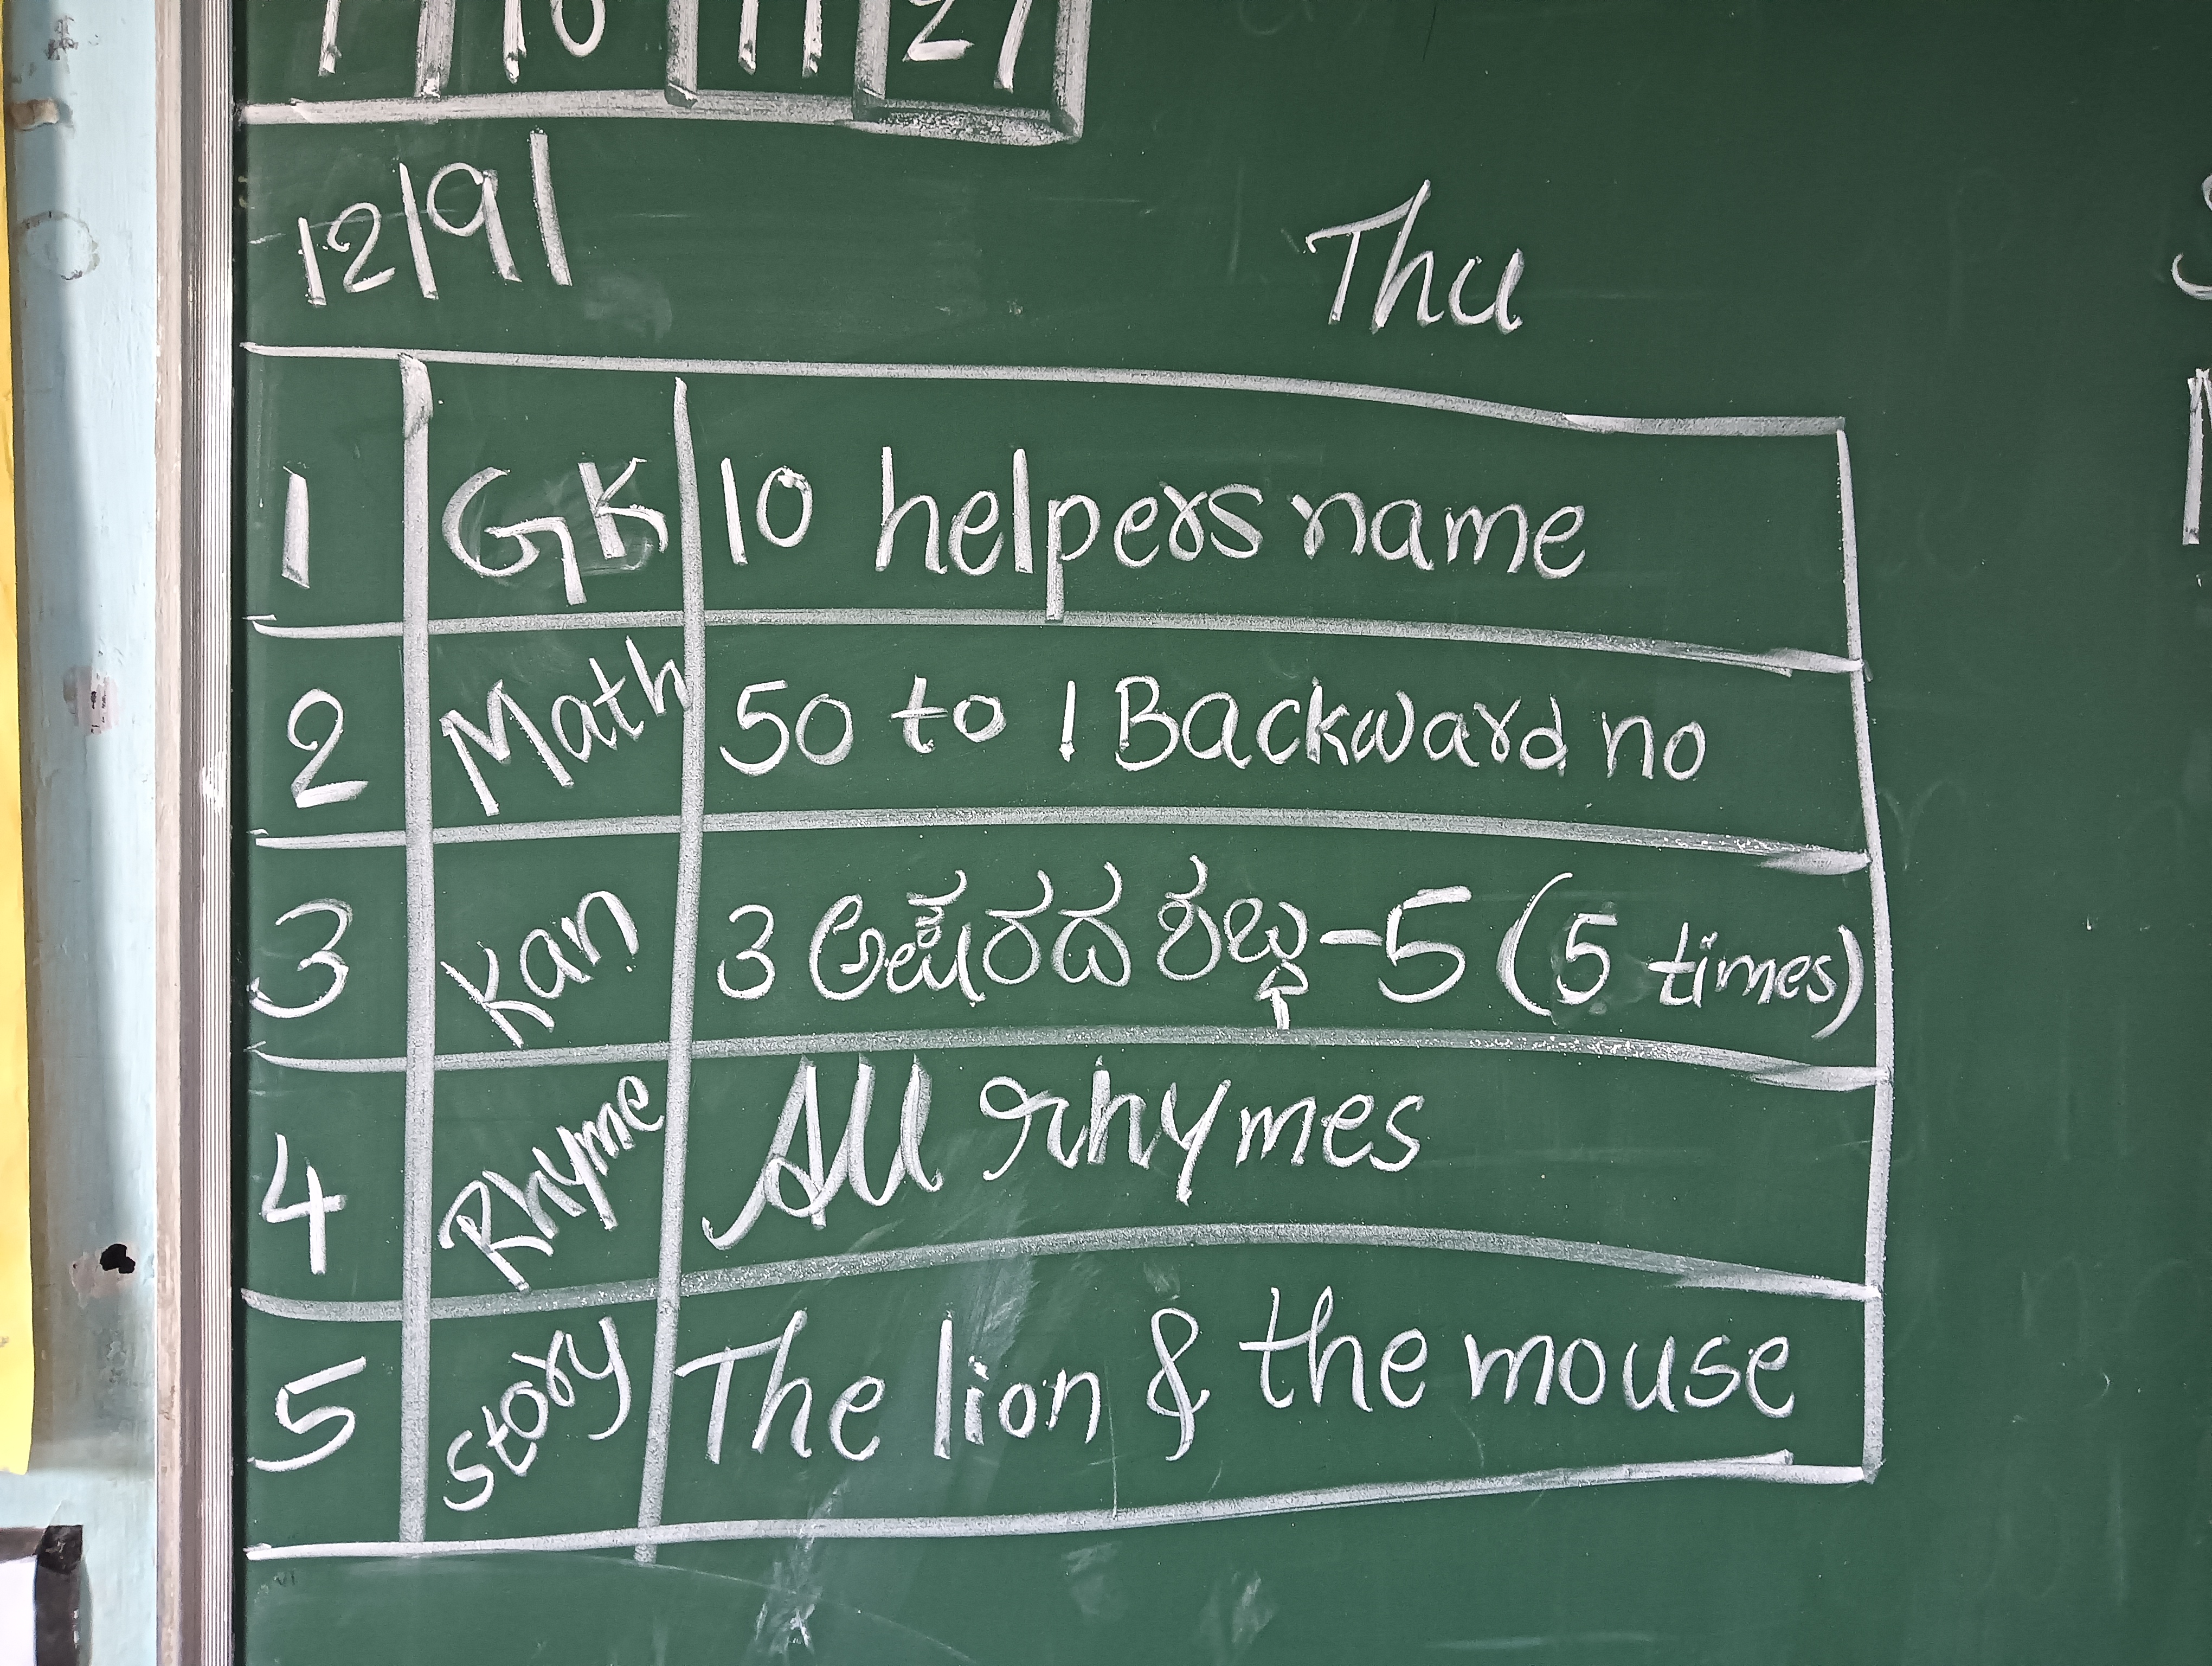 12/9/ Thu
1 GK 10 helpers name
2 Math 50 to 1 Backward no
3 Kan 3 ಅಕ್ಷರದ ಶಬ್ಧ-5 (5 times)
4 Rhyme All rhymes
5 Story The lion & the mouse